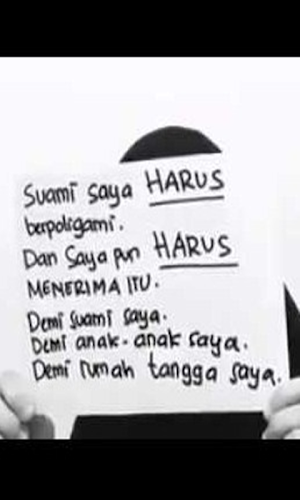 Suami saya HARUS
berpoligami.
Dan saya pun HARUS
MENERIMA ITU.
Demi suami saya.
Demi anak-anak saya.
Demi rumah tangga saya.